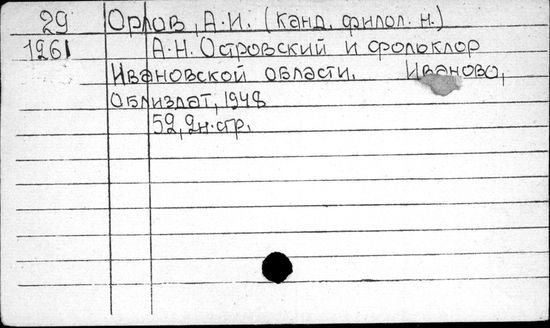 29 Орлов, А.И. (канд. филол. н.)
1961 А.Н. Островский и фольклор
Ивановской области. Иваново,
Облиздат, 1948
52, 2н.стр.